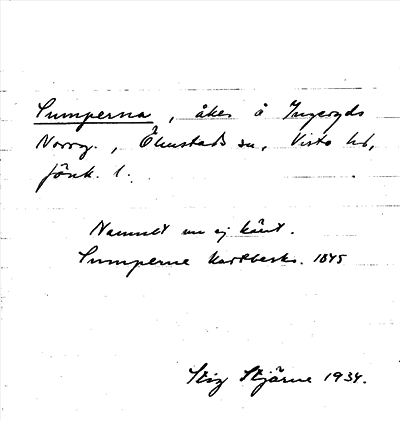 Sumperna, åker å Ingeryds
Norrg., Ölmstads sn, Vista hd,
Jönk. l.
Namnet nu ej känt.
Sumperne Kartbeskr. 1845
Stig Stjärne 1934.